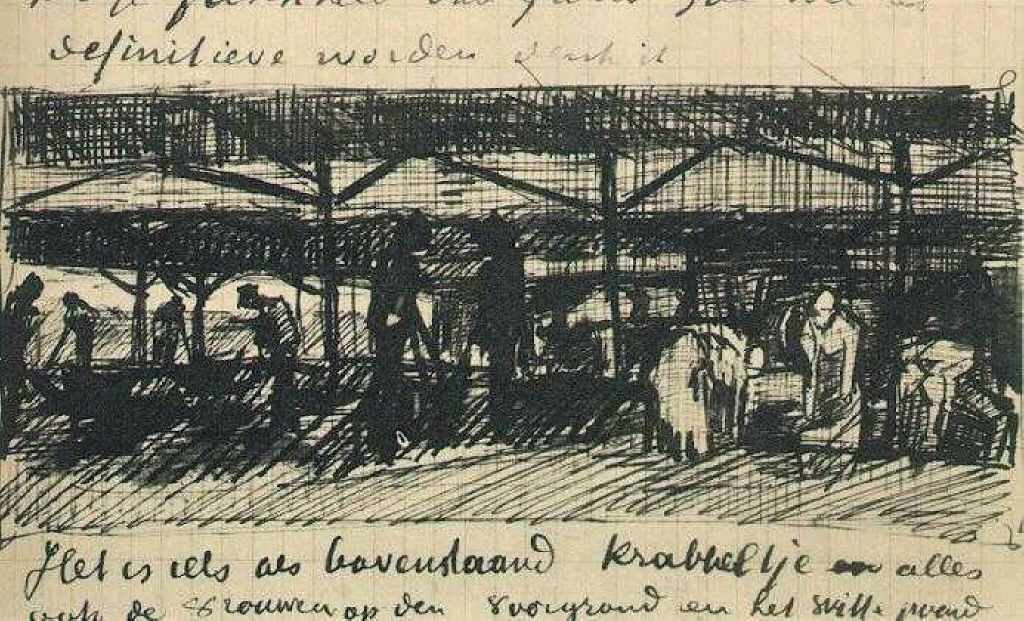 van zou wel
definitieve worden denk ik
Het is iets als bovenstaand krabbeltje en alles
ook de vrouwen op den voorgrond en het witte paard